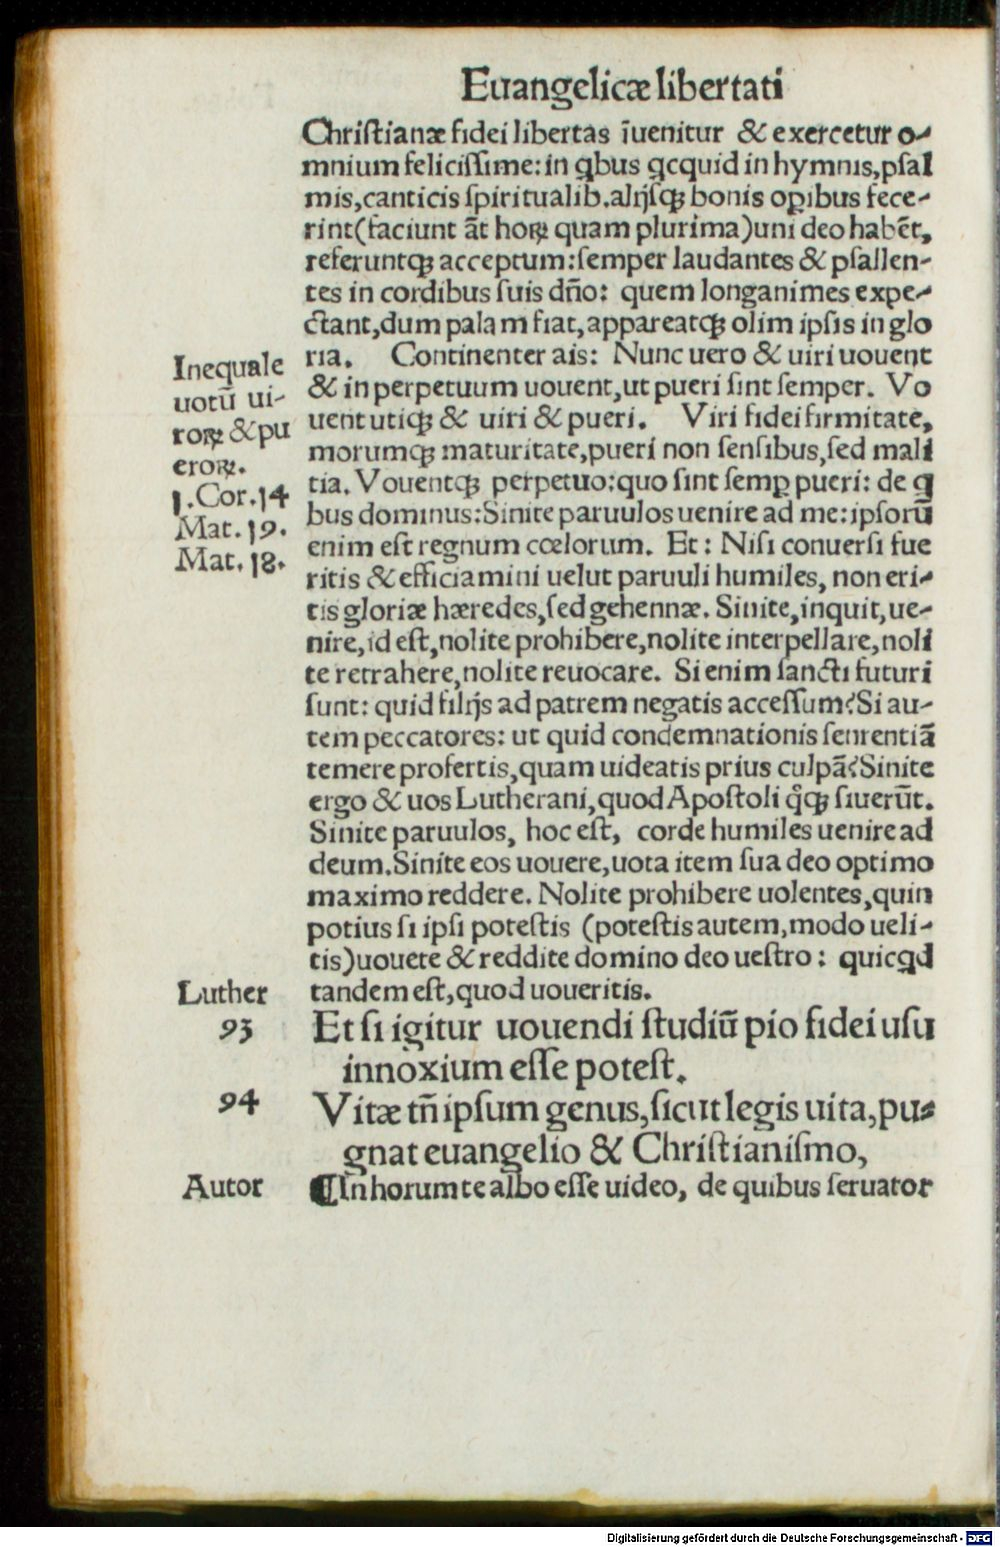 Euangelicæ libertati
Chriſtianæ fidei libertas īuenitur & exercetur o-
mnium feliciſſime: in ꝗbus ꝗcquid in hymnis, pſal
mis, canticis ſpiritualib. alijſqꝫ bonis oꝑibus fece-
rint (faciunt āt hoꝝ quam plurima) uni deo habēt,
referuntqꝫ acceptum: ſemper laudantes & pſallen-
tes in cordibus ſuis dn̄o: quem longanimes expe-
ctant, dum palam fiat, appareatqꝫ olim ipſis in glo
ria. Continenter ais: Nunc uero & uiri uouent
& in perpetuum uouent, ut pueri ſint ſemper. Vo
uent utiqꝫ & uiri & pueri. Viri fidei firmitate,
morumqꝫ maturitate, pueri non ſenſibus, ſed mali
tia. Vouentqꝫ perpetuo: quo ſint ſemꝑ pueri: de ꝗ
bus dominus: Sinite paruulos uenire ad me: ipſorū
enim eſt regnum cœlorum. Et: Niſi conuerſi fue
ritis & efficiamini uelut paruuli humiles, non eri-
tis gloriæ hæredes, ſed gehennæ. Sinite, inquit, ue-
nire, id eſt, nolite prohibere, nolite interpellare, noli
te retrahere, nolite reuocare. Si enim ſancti futuri
ſunt: quid filijs ad patrem negatis acceſſum? Si au-
tem peccatores: ut quid condemnationis ſentrentiā
temere profertis, quam uideatis prius culpā? Sinite
ergo & uos Lutherani, quod Apoſtoli qͦqꝫ ſiuerūt.
Sinite paruulos, hoc eſt, corde humiles uenire ad
deum. Sinite eos uouere, uota item ſua deo optimo
maximo reddere. Nolite prohibere uolentes, quin
potius ſi ipſi poteſtis (poteſtis autem, modo ueli-
tis) uouete & reddite domino deo ueſtro: quicꝗd
tandem eſt, quod uoueritis.
Et ſi igitur uouendi ſtudiū pio fidei uſu
innoxium eſſe poteſt.
Vitæ tn̄ ipſum genus, ſicut legis uita, pu-
gnat euangelio & Chriſtianiſmo,
¶ In horum te albo eſſe uideo, de quibus ſeruator
Inequale
uotū ui-
roꝝ & pu
eroꝝ.
1. Cor. 14
Mat. 19.
Mat. 18.
Luther
93
94
Autor
Digitalisierung gefördert durch die Deutsche Forschungsgemeinschaft - DFG